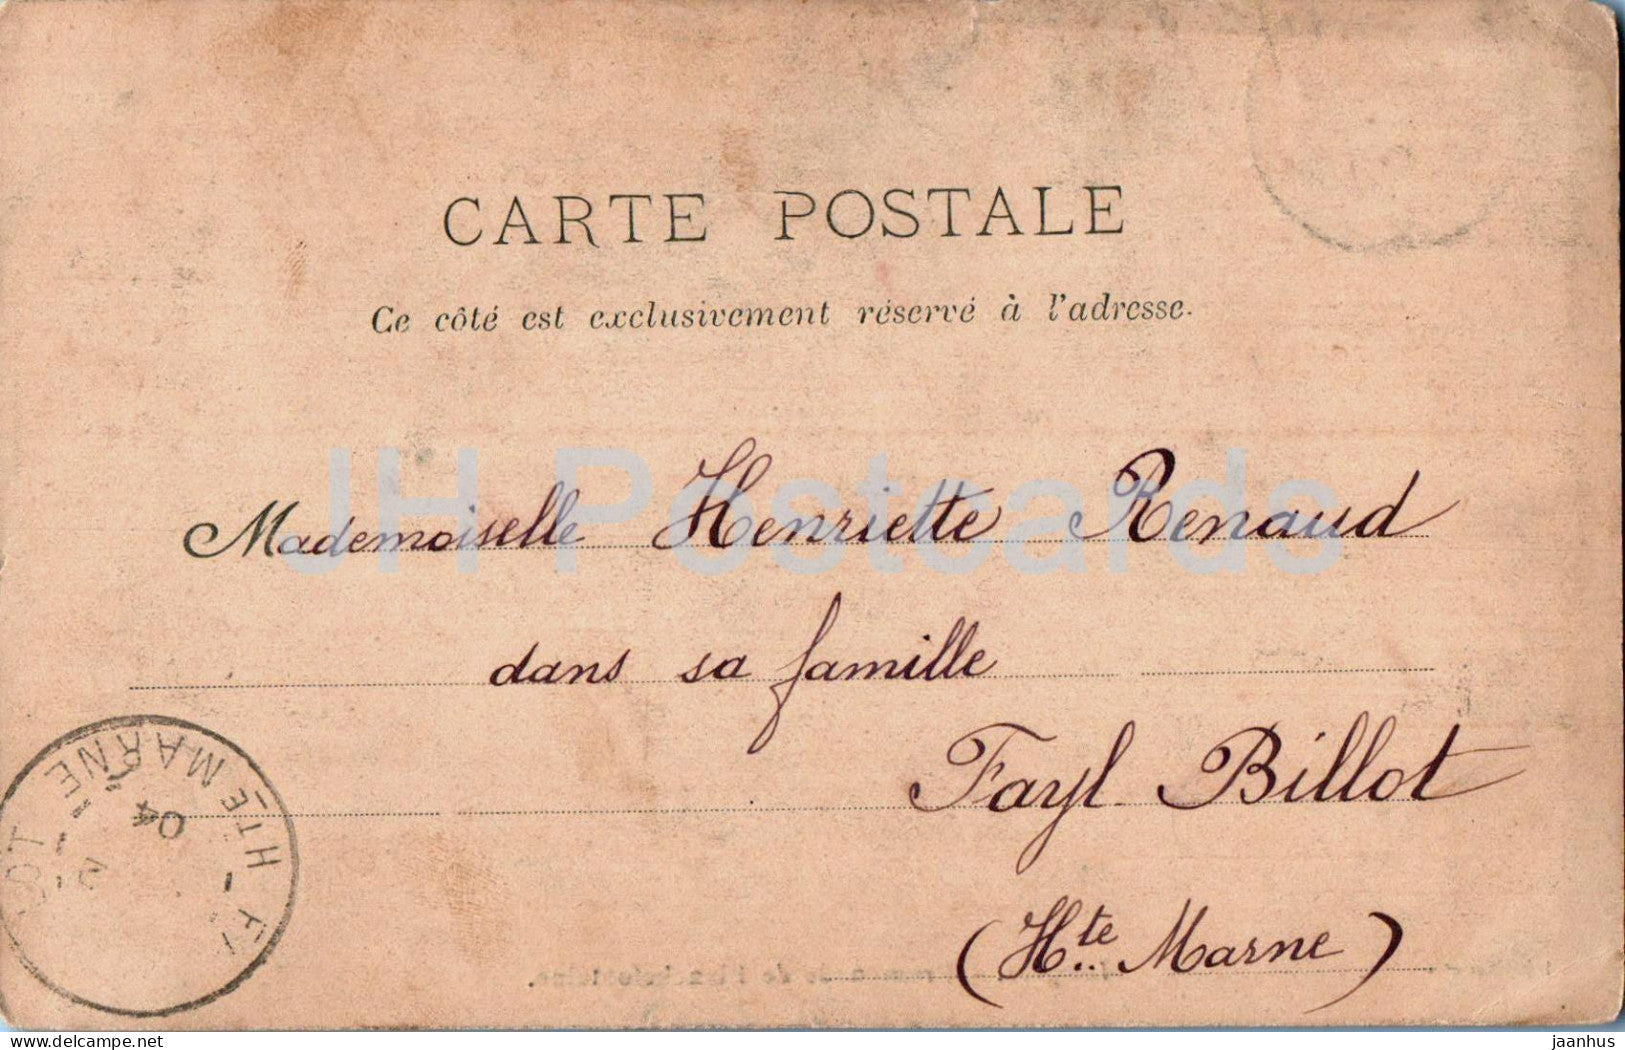 CARTE POSTALE
Ce côté est exclusivement réservé à l'adresse.
JH Postcards
Mademoiselle Henriette Renaud
dans sa famille
Fayl Billot
(Hte Marne)
HTE MARNE
04
delcampe.net
jaanhus